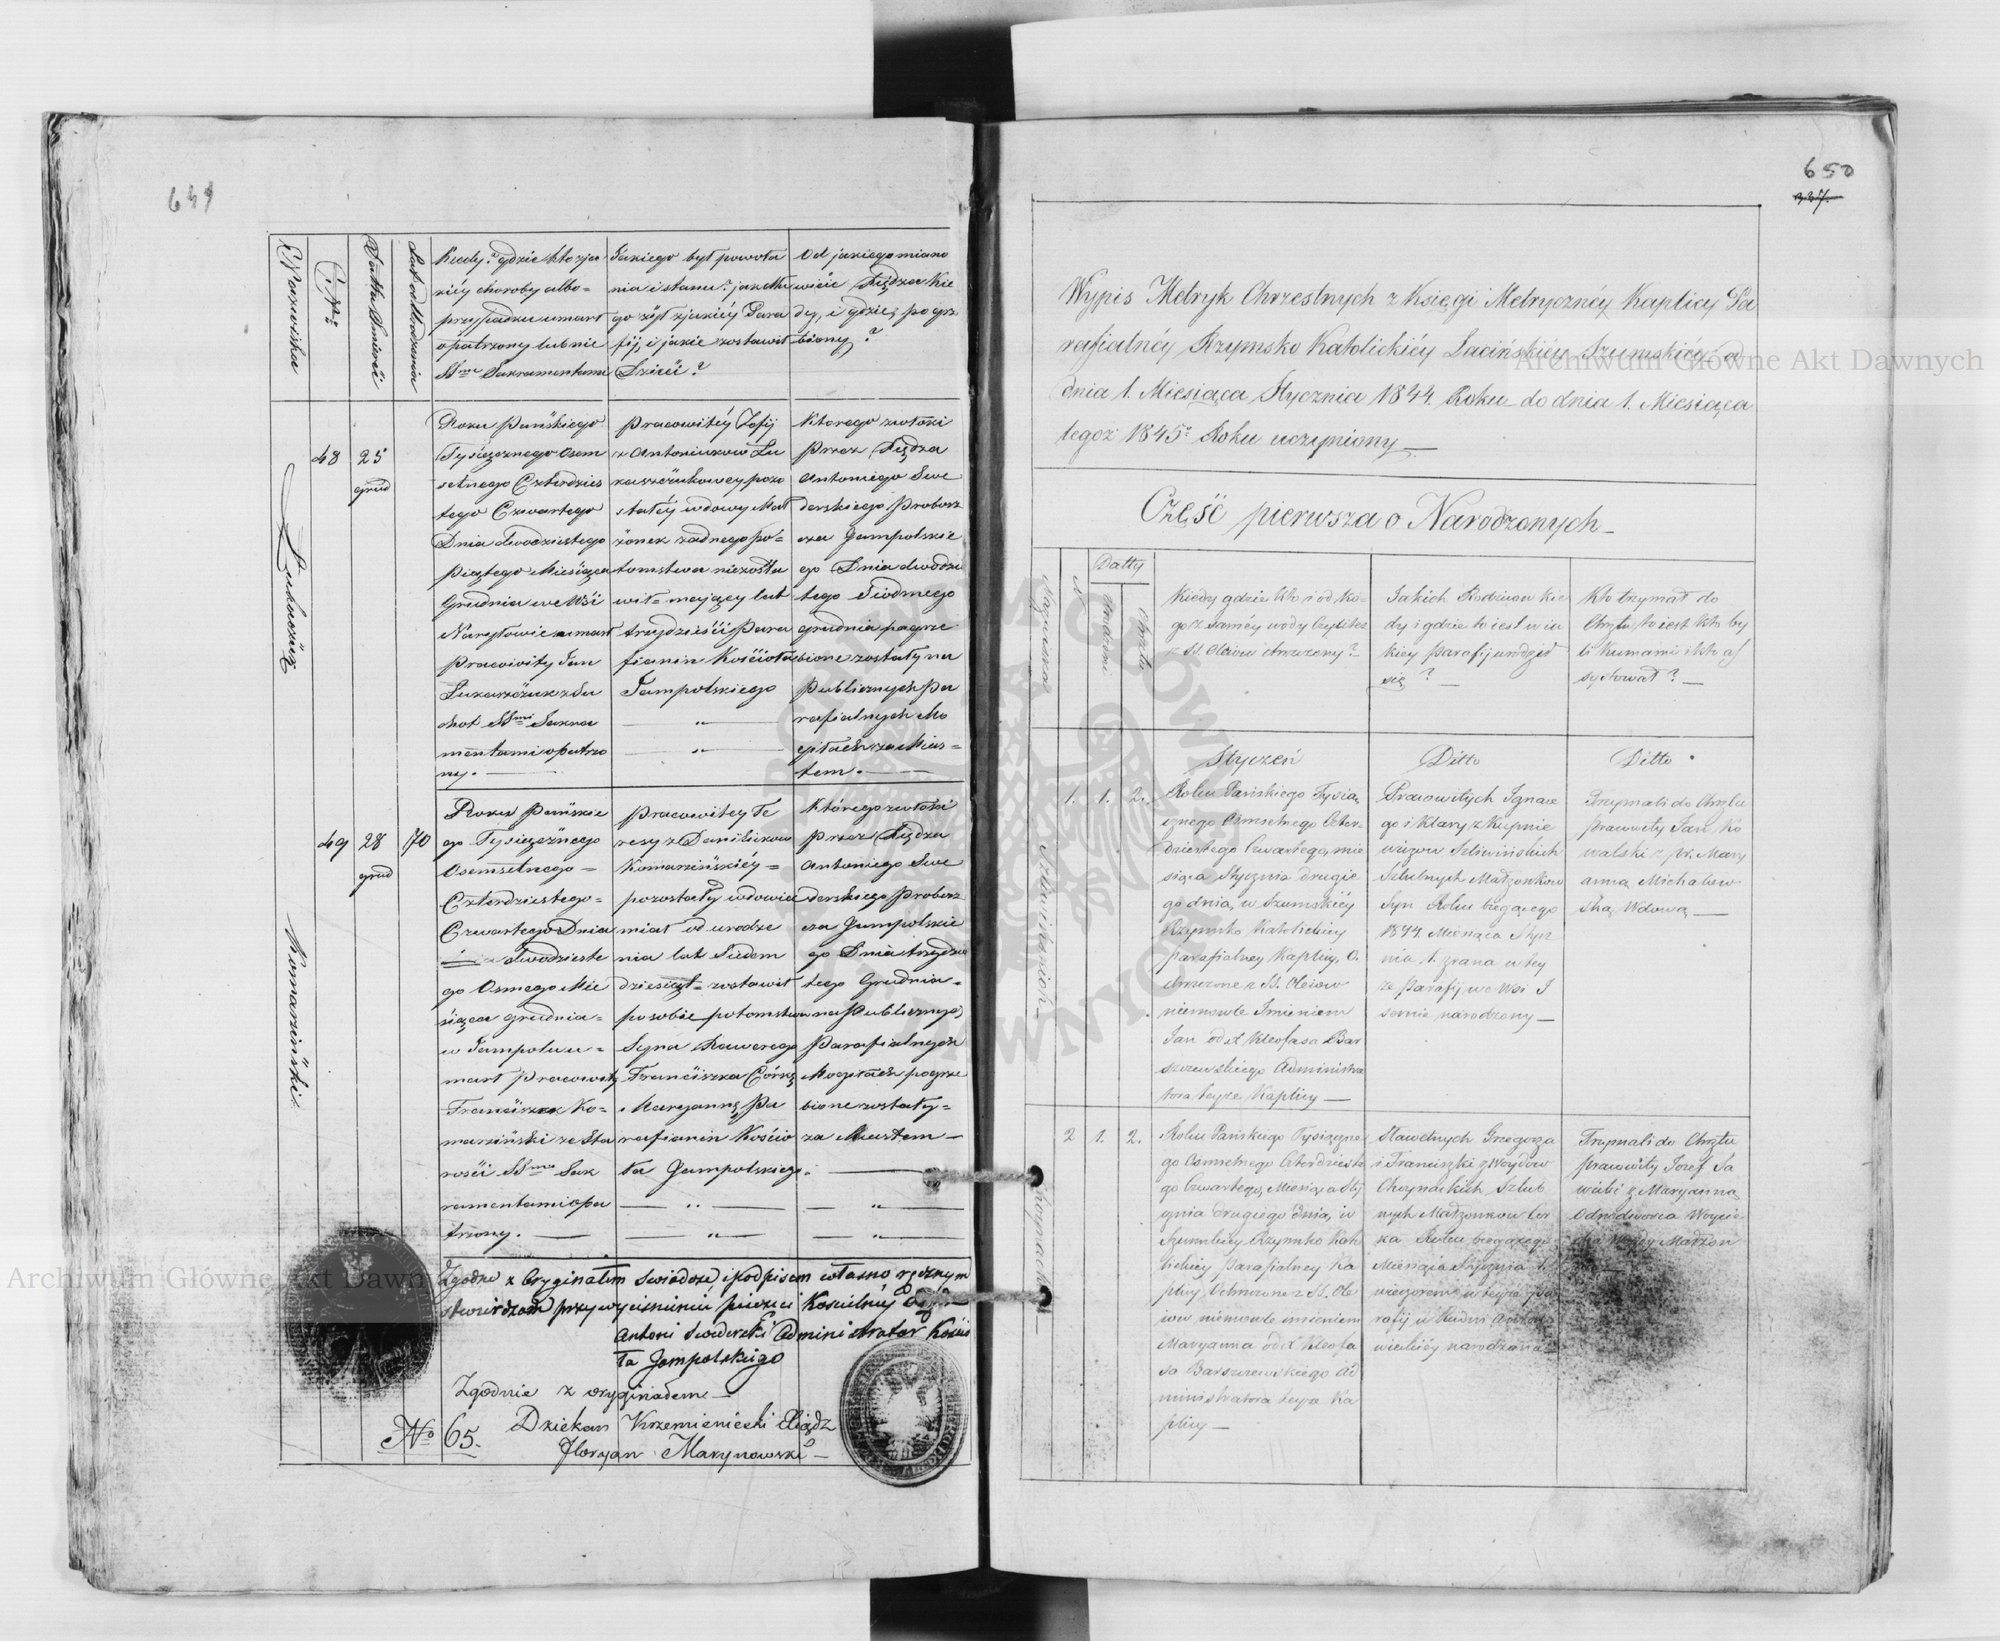 649
Nazwiska
Datta Śmierci
Lat od Urodzenia
Kiedy? gdzie kto z ja
kiéy choroby albo
przypadku umarł
opatrzony lub nie
SSmi Sakramentami
Jakiego był powoła
nia i stanu? jak dłu
go żył z jakiéy Para
fij, i jakie zostawił
Dzieci?
Od jakiego miano
wicie Xiędza kie
dy, i gdzie, pogrze
biony?
48
25
grud
Roku Pańskiego
Tysięcznego Osem
setnego Czterdzies
tego Czwartego
Dnia dwudziestego
piątego Miesiąca
Grudnia we Wsi
umarł
Pracowity Jan
Łukaszczuk z Su
chot SSmi Sakra
mentami opatrzo
ny.
Pracowitéy Zofij
z Antoniuków Łu
kaszczukowey pozo
stałéy wdowy Mał
żonek żadnego po=
tomstwa niezosta
wił= mający lat
trzydzieści Para
fianin Kościoła
Jampolskiego
Którego zwłoki
przez Xiędza
Antoniego Swe
derskiego Probosz
cza Jampolskie
go Dnia dwudzies
tego Siódmego
grudnia pogrze
bione zostały na
Publicznych Pa
rafialnych Mo
giłach za Mias=
tem.
Komarziński
49
28
grud
70
Roku Pańskie
go Tysięcznego
Osemsetnego=
Czterdziestego=
Czwartego Dnia
dwudzieste
go Osmego Mie
siąca grudnia=
w Jampolu u=
marł Pracowity
Franciszek Ko=
marziński ze Sta
rości SSmi Sak
ramentami opa
trzony.
Pracowitey Te
resy z Danilukow
Komarzińskiéy=
pozostały wdowiec
miał od urodze
nia lat Siedem
dziesiąt= zostawił
po sobie potomstwo
Syna Xawerego
Franciszka Córkę
Maryannę Pa
rafianin Kościo
ła Jampolskiego.
Którego zwłoki
przez Xiędza
Antoniego Swe
derskiego Probosz
cza Jampolskie
go Dnia trzydzies
tego Grudnia=
na Publicznych
Parafialnych
Mogiłach pogrze
bione zostały=
za Miastem
Zgodno z Oryginałem świadczę i podpisem własno ręcznym
stwierdzam przy wyciśnieniu pieczęci Kościelnéy
Antoni Swederski Administrator Kościo
ła Jampolskiego
Zgodnie z oryginałem
Dziekan Krzemieniecki Xiądz
No 65.
Floryan Marynowski
650
Wypis Metryk Chrzestnych z Księgi Metrycznéy Kaplicy Pa
rafialnéy Rzymsko Katolickiéy Łacińskiéy Szumskiéy od
dnia 1. Miesiąca Stycznia 1844. Roku do dnia 1. Miesiąca
tegoż 1845o Roku uczyniony
Część pierwsza o Narodzonych
Datty
N
Nazwiska
Urodzenia
Chrztu
Kiedy gdzie kto i od ko=
go z saméy wody czy też
z SS. Oleiów chrzczony?
Jakich Rodziców kie
dy i gdzie to iest w ia
kiey parafij urodził
się?
Kto trzymał do
Chrztu, to iest kto by
li kumami i kto as
systował?
Styczeń
Ditto
Ditto
1.
1.
2.
Roku Pańskiego Tysią
cznego Osmsetnego Czter=
dziestego Czwartego, mie
siąca Stycznia drugie
go dnia, w Szumskiéy
Rzymsko Katolickiey
parafialney Kaplicy, O
chrzczone z SS. Oleiow
niemowle Imieniem
Jan od X Kleofasa Bar
szczewskiego Administra
tora teyże Kaplicy
Pracowitych Ignace
go i Klary z Kupnie
wiczow Szliwińskich
Szlubnych Małżonkow
Syn Roku biegącego
1844. Miesiąca Stycz
nia 1. zrana w tey
że parafij we Wsi I
sernie narodzony
Trzymali do Chrztu
pracowity Jan Ko
walski z pr. Mary
anną Michalew
ską Wdową
2
1.
2.
Roku Pańskiego Tysiączne
go Osmsetnego Czterdzieste
go Czwartego, Miesiąca Sty
cznia drugiego dnia, w
Szumskiey Rzymsko Kato
lickiey parafialney Ka
plicy, Ochrzczone z SS. Ole
iow niemowle imieniem
Maryanna od X Kleofa
sa Barszczewskiego Ad
ministratora teyże Ka
plicy
Sławetnych Grzegorza
i Franciszki z Woydow
Szlub
nych Małżonkow Cor
ka Roku biegącego
Miesiąca Stycznia 1.
wieczorem w teyże pa
rafij w Rudni
narodzona
Trzymali do Chrztu
pracowity Jozef Sa
wicki z Maryanną
Małżon
Archiwum Główne Akt Dawnych
Archiwum Główne Akt Dawnych